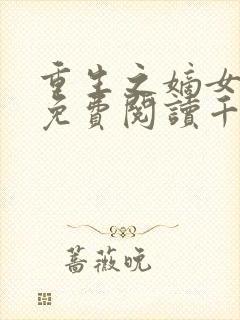 重生之嫡女
免費閱讀千
蔷薇晚